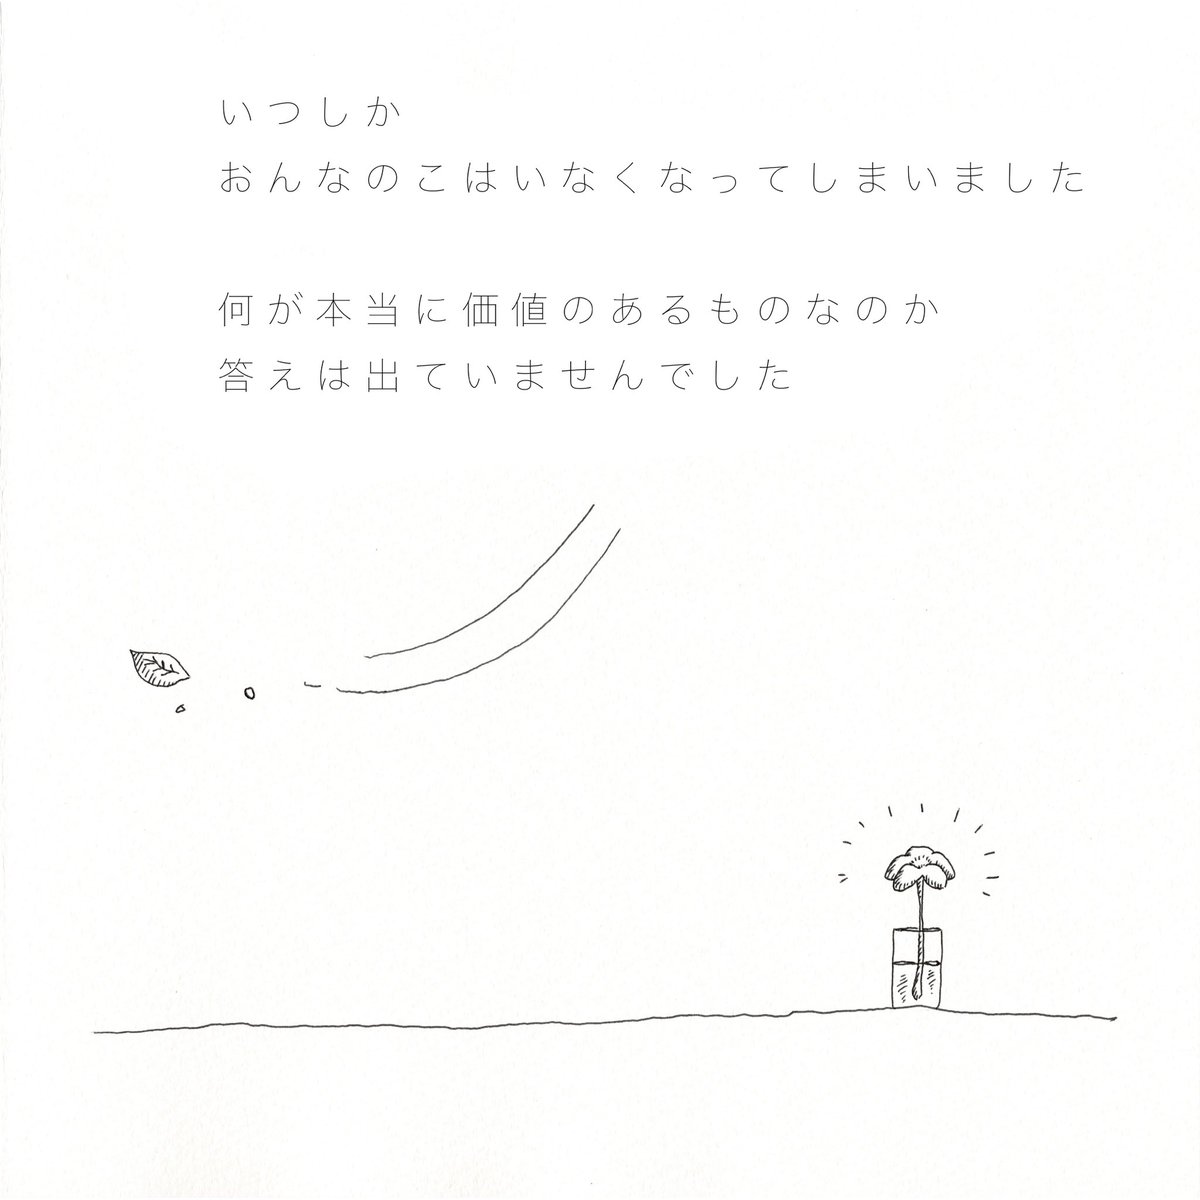 いつしか
おんなのこはいなくなってしまいました
何が本当に価値のあるものなのか
答えは出ていませんでした